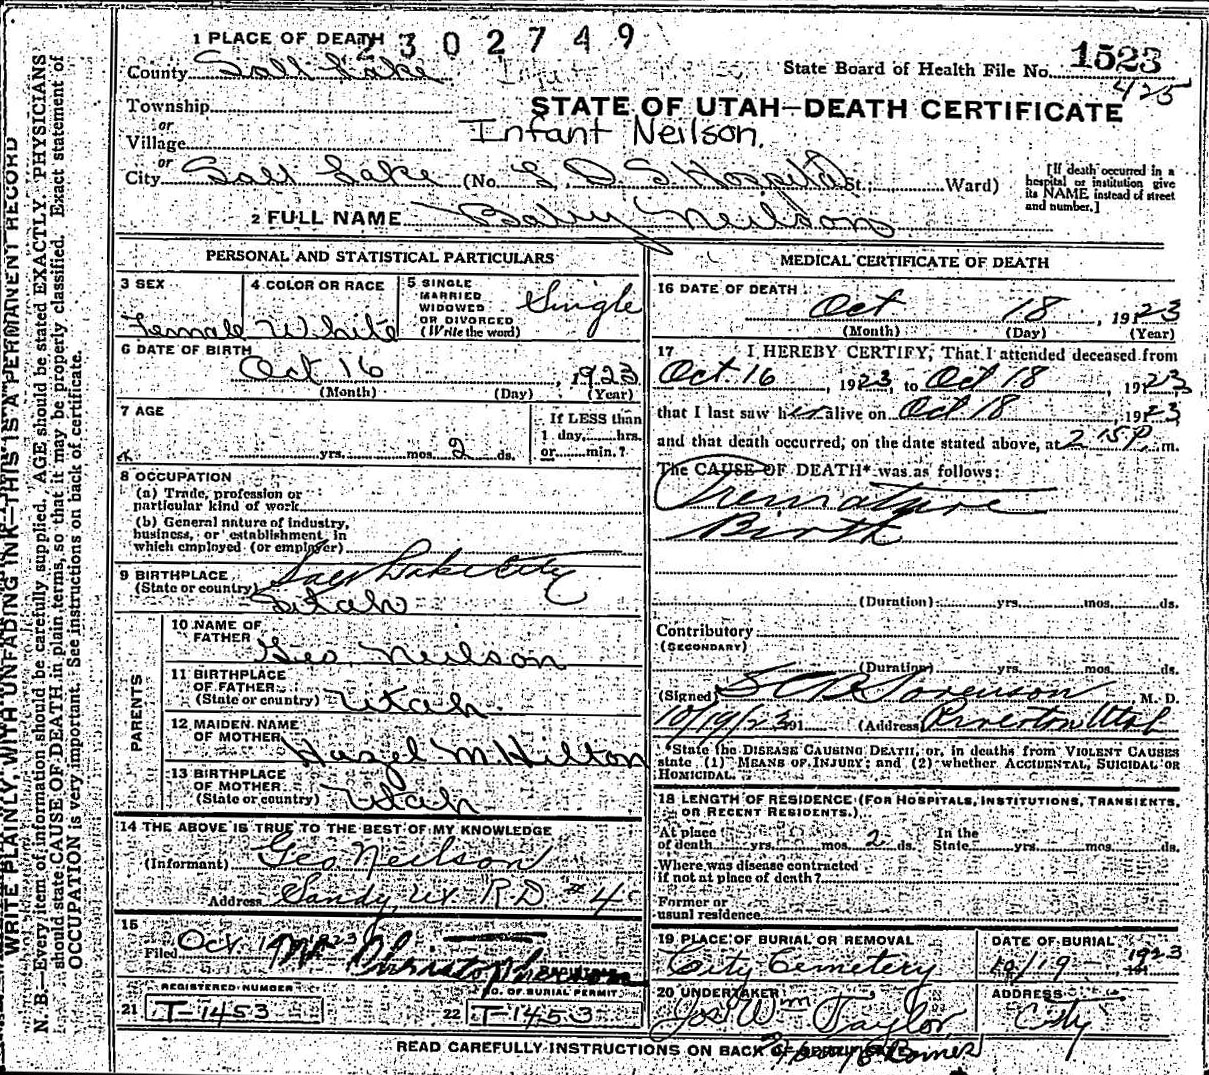 WRITE PLAINLY, WITH UNFADING INK—THIS IS A PERMANENT RECORD
N. B.—Every item of information should be carefully supplied. AGE should be stated EXACTLY. PHYSICIANS
should state CAUSE OF DEATH in plain terms, so that it may be properly classified. Exact statement of
OCCUPATION is very important. See instructions on back of certificate.
1 PLACE OF DEATH
2302749
County Salt Lake
State Board of Health File No. 1523
425
Township
or
STATE OF UTAH—DEATH CERTIFICATE
Village
Infant Neilson.
or
City Salt Lake (No. L.D.S Hospital St.; Ward)
[If death occurred in a
hospital or institution give
its NAME instead of street
and number.]
2 FULL NAME Baby Neilson
PERSONAL AND STATISTICAL PARTICULARS
3 SEX
Female
4 COLOR OR RACE
White
5 SINGLE
MARRIED
WIDOWED
OR DIVORCED
(Write the word)
Single
6 DATE OF BIRTH
Oct 16, 1923
(Month) (Day) (Year)
7 AGE
yrs. mos. 2 ds.
If LESS than
1 day, hrs.
or min.?
8 OCCUPATION
(a) Trade, profession or
particular kind of work
(b) General nature of industry,
business, or establishment in
which employed (or employer)
9 BIRTHPLACE
(State or country)
Salt Lake City
Utah
PARENTS
10 NAME OF
FATHER
Geo Neilson
11 BIRTHPLACE
OF FATHER
(State or country) Utah.
12 MAIDEN NAME
OF MOTHER
Hazel M. Hilton
13 BIRTHPLACE
OF MOTHER
(State or country) Utah
14 THE ABOVE IS TRUE TO THE BEST OF MY KNOWLEDGE
(Informant) Geo Neilson
Address Sandy, Ut. R.D #4
15
Filed Oct 19 1923
REGISTERED NUMBER
21 T-1453
NO. OF BURIAL PERMIT
22 T-1453
MEDICAL CERTIFICATE OF DEATH
16 DATE OF DEATH
Oct 18, 1923
(Month) (Day) (Year)
17 I HEREBY CERTIFY, That I attended deceased from
Oct. 16, 1923, to Oct 18, 1923
that I last saw her alive on Oct 18 1923
and that death occurred, on the date stated above, at 2 15 P. m.
The CAUSE OF DEATH* was as follows:
Premature
Birth
(Duration) yrs. mos. ds.
Contributory
(SECONDARY)
(Duration) yrs. mos. ds.
(Signed) Sorenson M. D.
10/19/23 191 (Address) Riverton Utah
*State the DISEASE CAUSING DEATH, or, in deaths from VIOLENT CAUSES
state (1) MEANS OF INJURY; and (2) whether ACCIDENTAL, SUICIDAL OR
HOMICIDAL.
18 LENGTH OF RESIDENCE (FOR HOSPITALS, INSTITUTIONS, TRANSIENTS,
OR RECENT RESIDENTS.)
At place
of death yrs. mos. 2 ds.
In the
State yrs. mos. ds.
Where was disease contracted
if not at place of death?
Former or
usual residence
19 PLACE OF BURIAL OR REMOVAL
City Cemetery
DATE OF BURIAL
10/19 - 1923
20 UNDERTAKER
Jos Wm Taylor
ADDRESS
City
READ CAREFULLY INSTRUCTIONS ON BACK OF